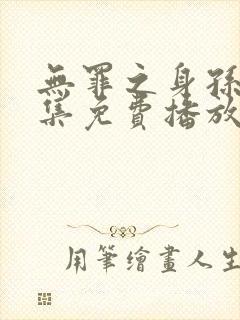 無罪之身孫
集免費播放
用筆繪畫人生